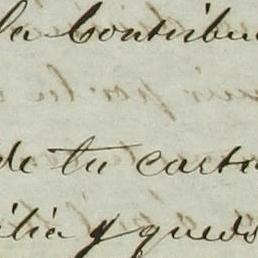 la Contribu
de tu carta
ilia y queds